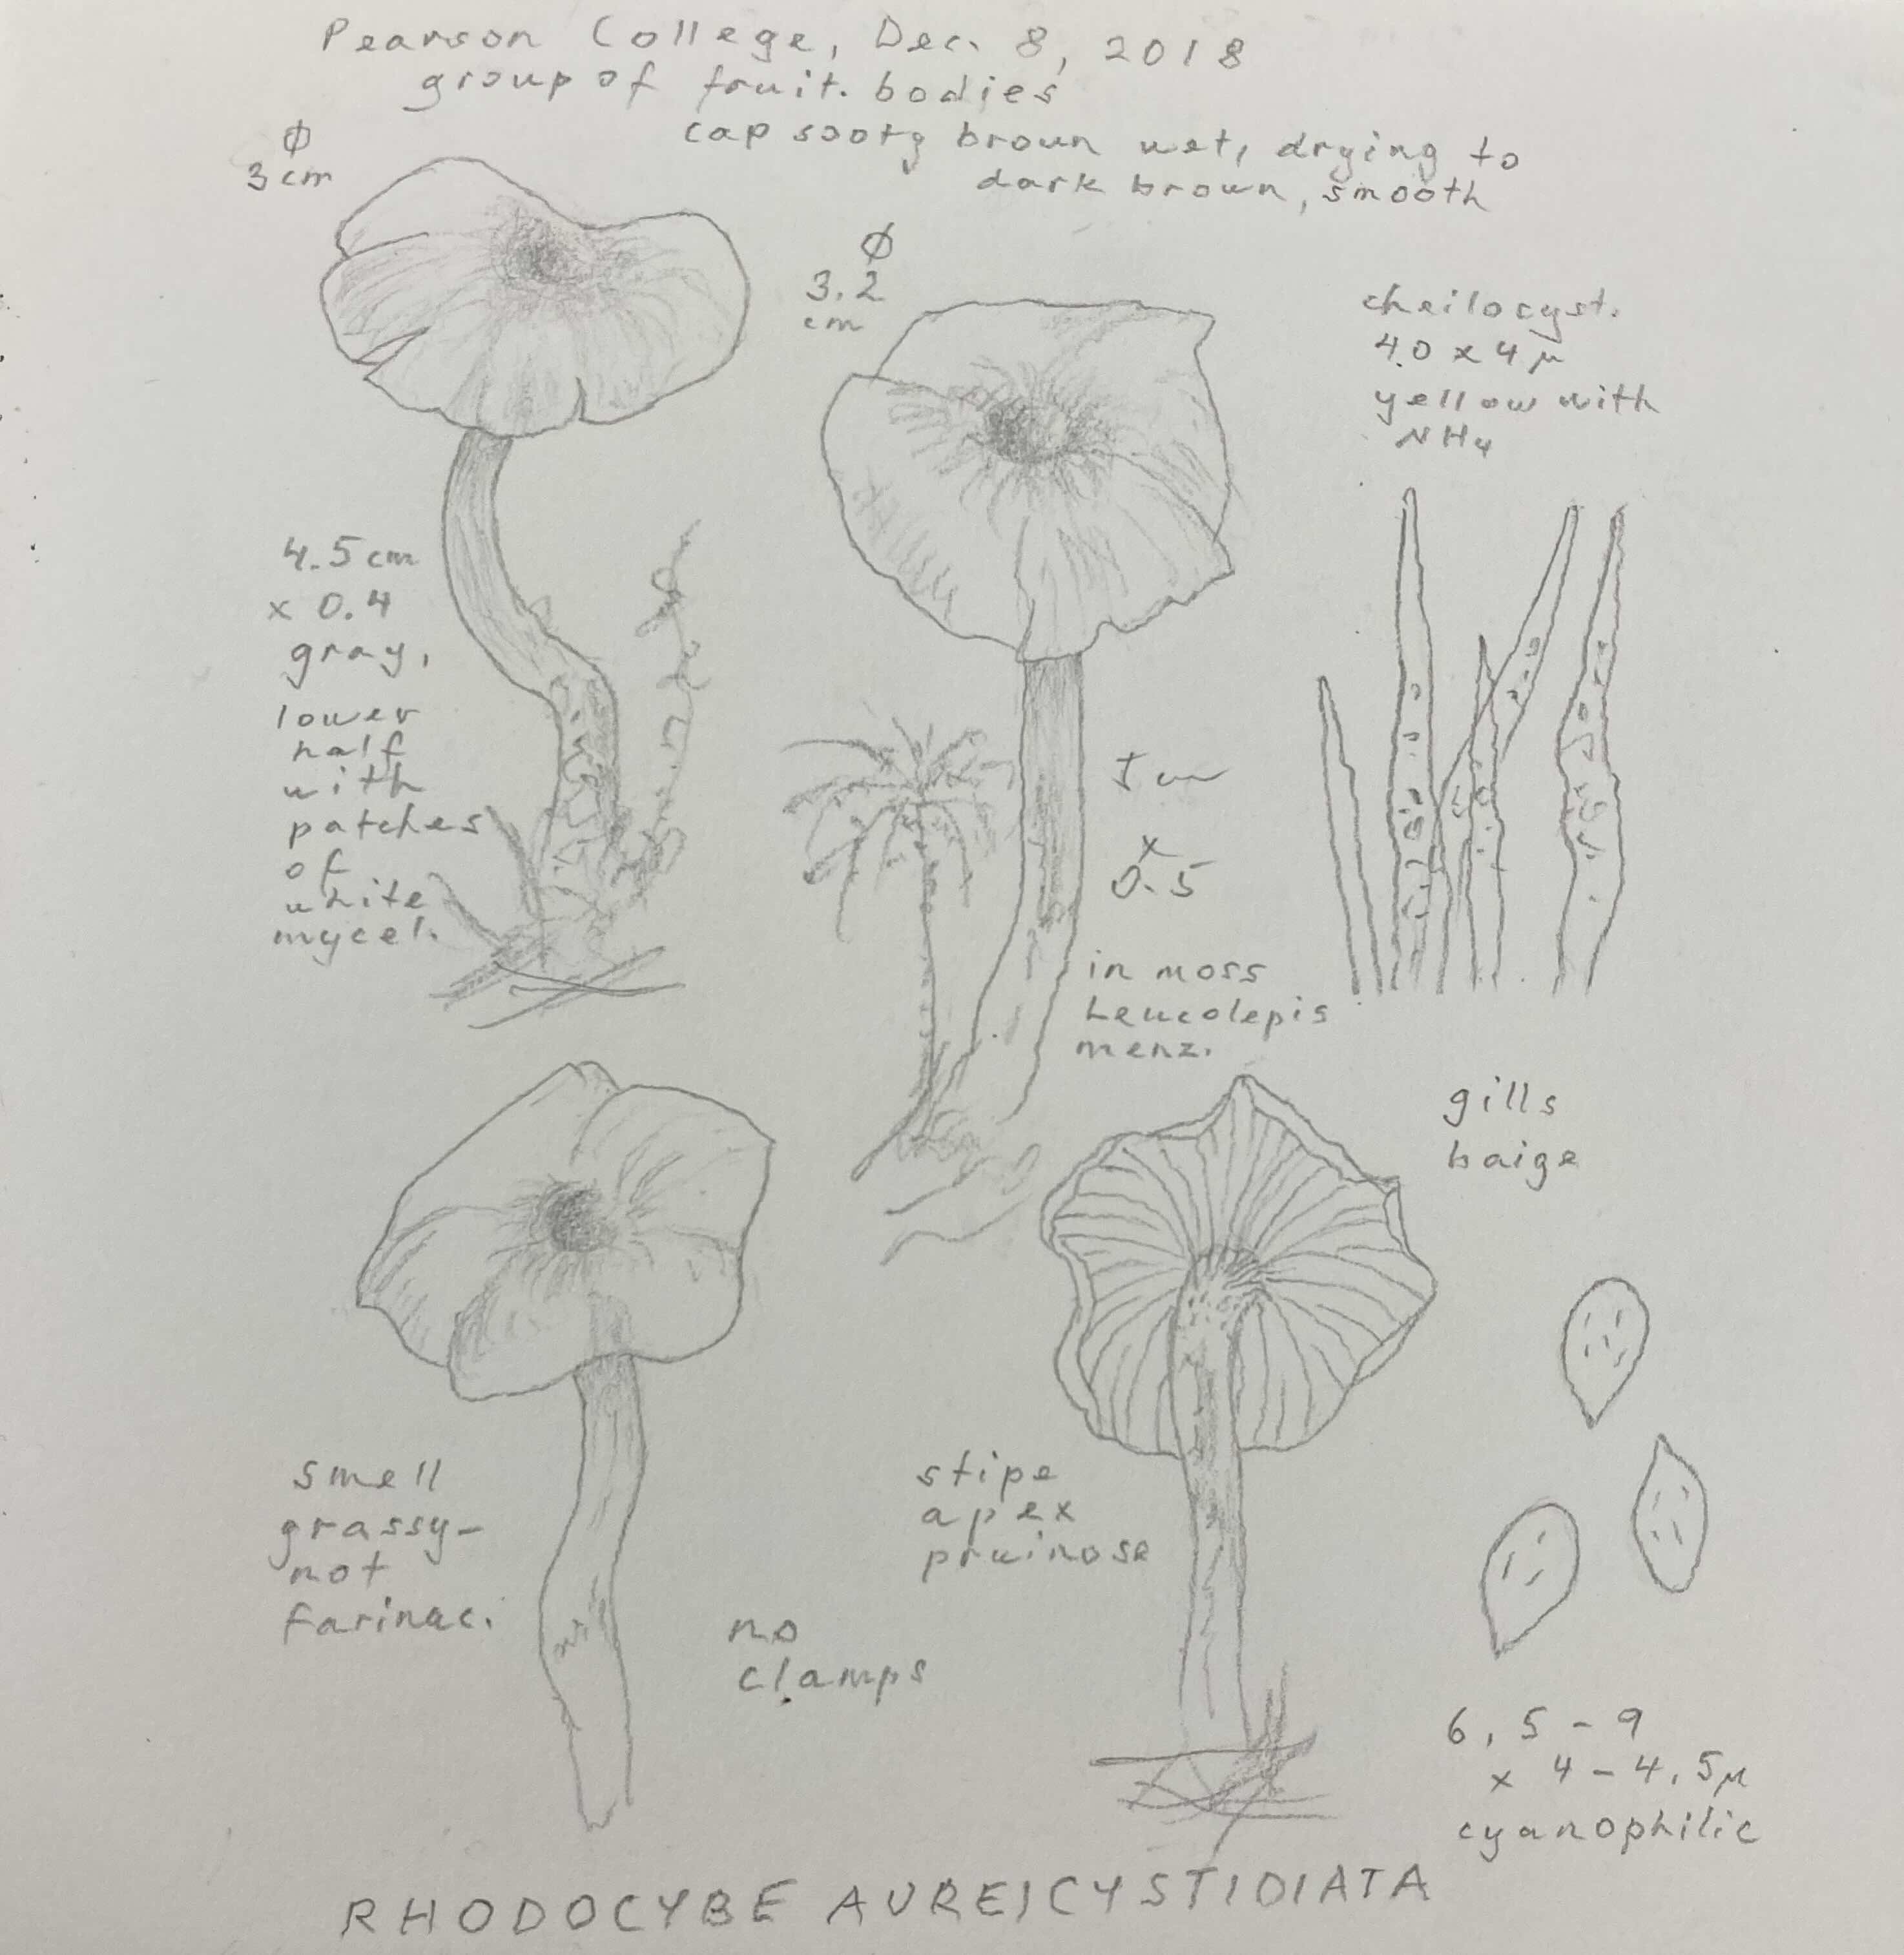 Pearson College, Dec. 8, 2018
group of fruit. bodies
cap sooty brown wet, drying to
dark brown, smooth
∅
3 cm
∅
3.2
cm
cheilocyst.
40 x 4 μ
yellow with
NH4
4.5 cm
x 0.4
gray,
lower
half
with
patches
of
white
mycel.
5 cm
x
0.5
in moss
Leucolepis
menz.
gills
baige
smell
grassy-
not
farinac.
no
clamps
stipe
apex
pruinose
6,5-9
x 4-4,5μ
cyanophilic
RHODOCYBE AUREICYSTIDIATA